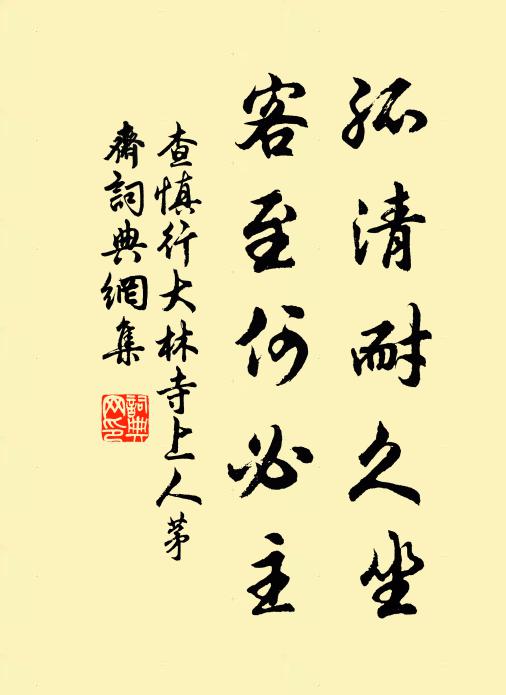 孤清耐久坐
客至何必主
查慎行大林寺上人茅
齋詞典網集
詞典
網印